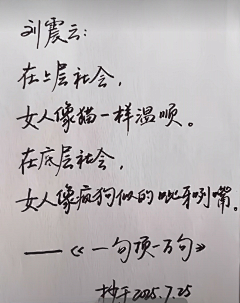 刘震云:
在上层社会,
女人像猫一样温顺。
在底层社会,
女人像疯狗似的呲牙咧嘴。
——《一句顶一万句》
抄于2025.7.25